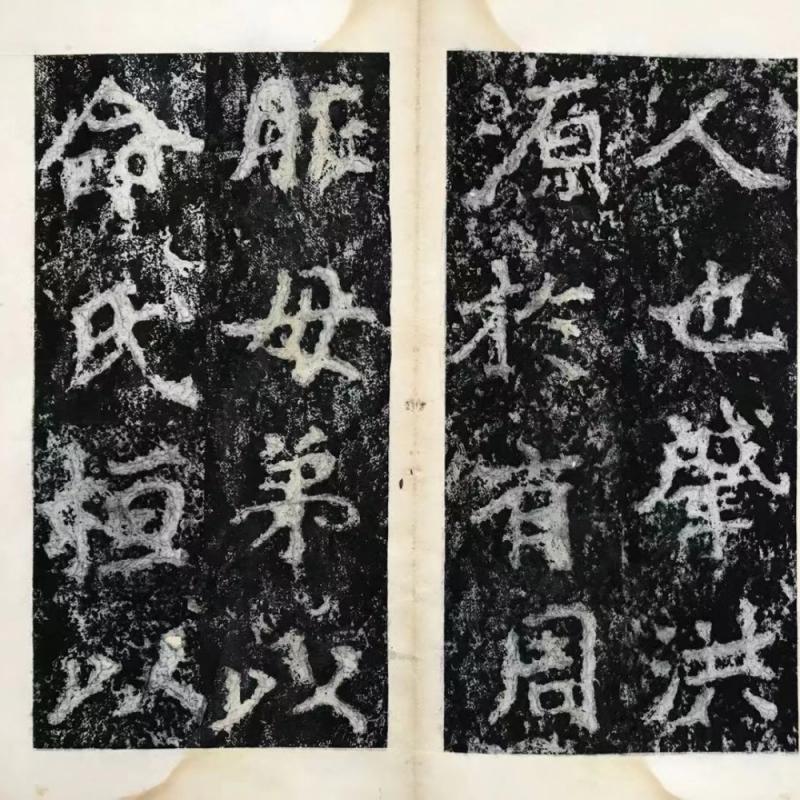 人也肇洪
源於有周
胙母弟以
命氏桓以